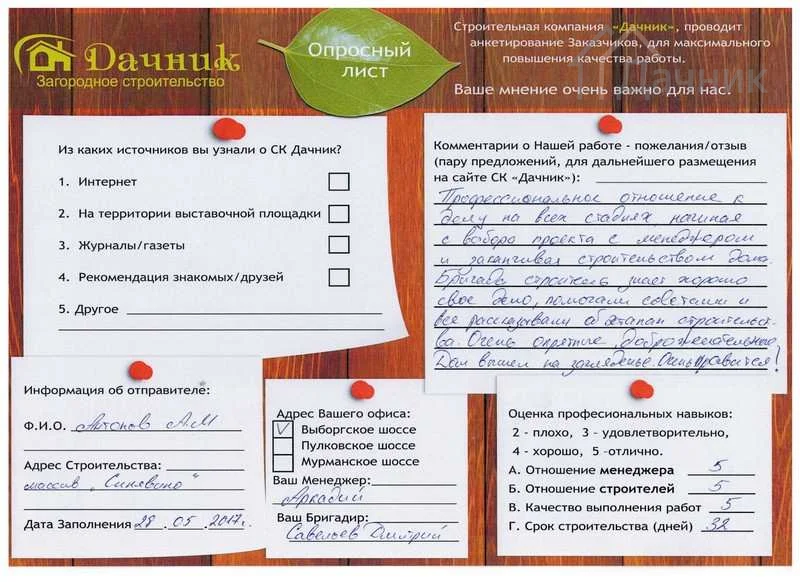 Дачник
Загородное строительство
Опросный
лист
Строительная компания «Дачник», проводит
анкетирование Заказчиков, для максимального
повышения качества работы.
Ваше мнение очень важно для нас.
Дачник
Из каких источников вы узнали о СК Дачник?
1. Интернет
2. На территории выставочной площадки
3. Журналы/газеты
4. Рекомендация знакомых/друзей
5. Другое
Комментарии о Нашей работе - пожелания/отзыв
(пару предложений, для дальнейшего размещения
на сайте СК «Дачник»):
Профессиональное отношение к
делу на всех стадиях начиная
с выбора проекта с менеджером
и заканчивая строительством дома.
Бригада строителей знает хорошо
свое дело, помогали советами и
все рассказывали об этапах строительст-
ва. Очень опрятные, доброжелательные.
Дом вышел на загляденье. Очень нравится!
Информация об отправителе:
Ф.И.О. Антонов А.М
Адрес Строительства:
массив „Синявино"
Дата Заполнения 28.05.2017г.
Адрес Вашего офиса:
Выборгское шоссе
Пулковское шоссе
Мурманское шоссе
Ваш Менеджер:
Аркадий
Ваш Бригадир:
Савельев Дмитрий
Оценка професиональных навыков:
2 - плохо, 3 - удовлетворительно,
4 - хорошо, 5 -отлично.
А. Отношение менеджера 5
Б. Отношение строителей 5
В. Качество выполнения работ 5
Г. Срок строительства (дней) 32